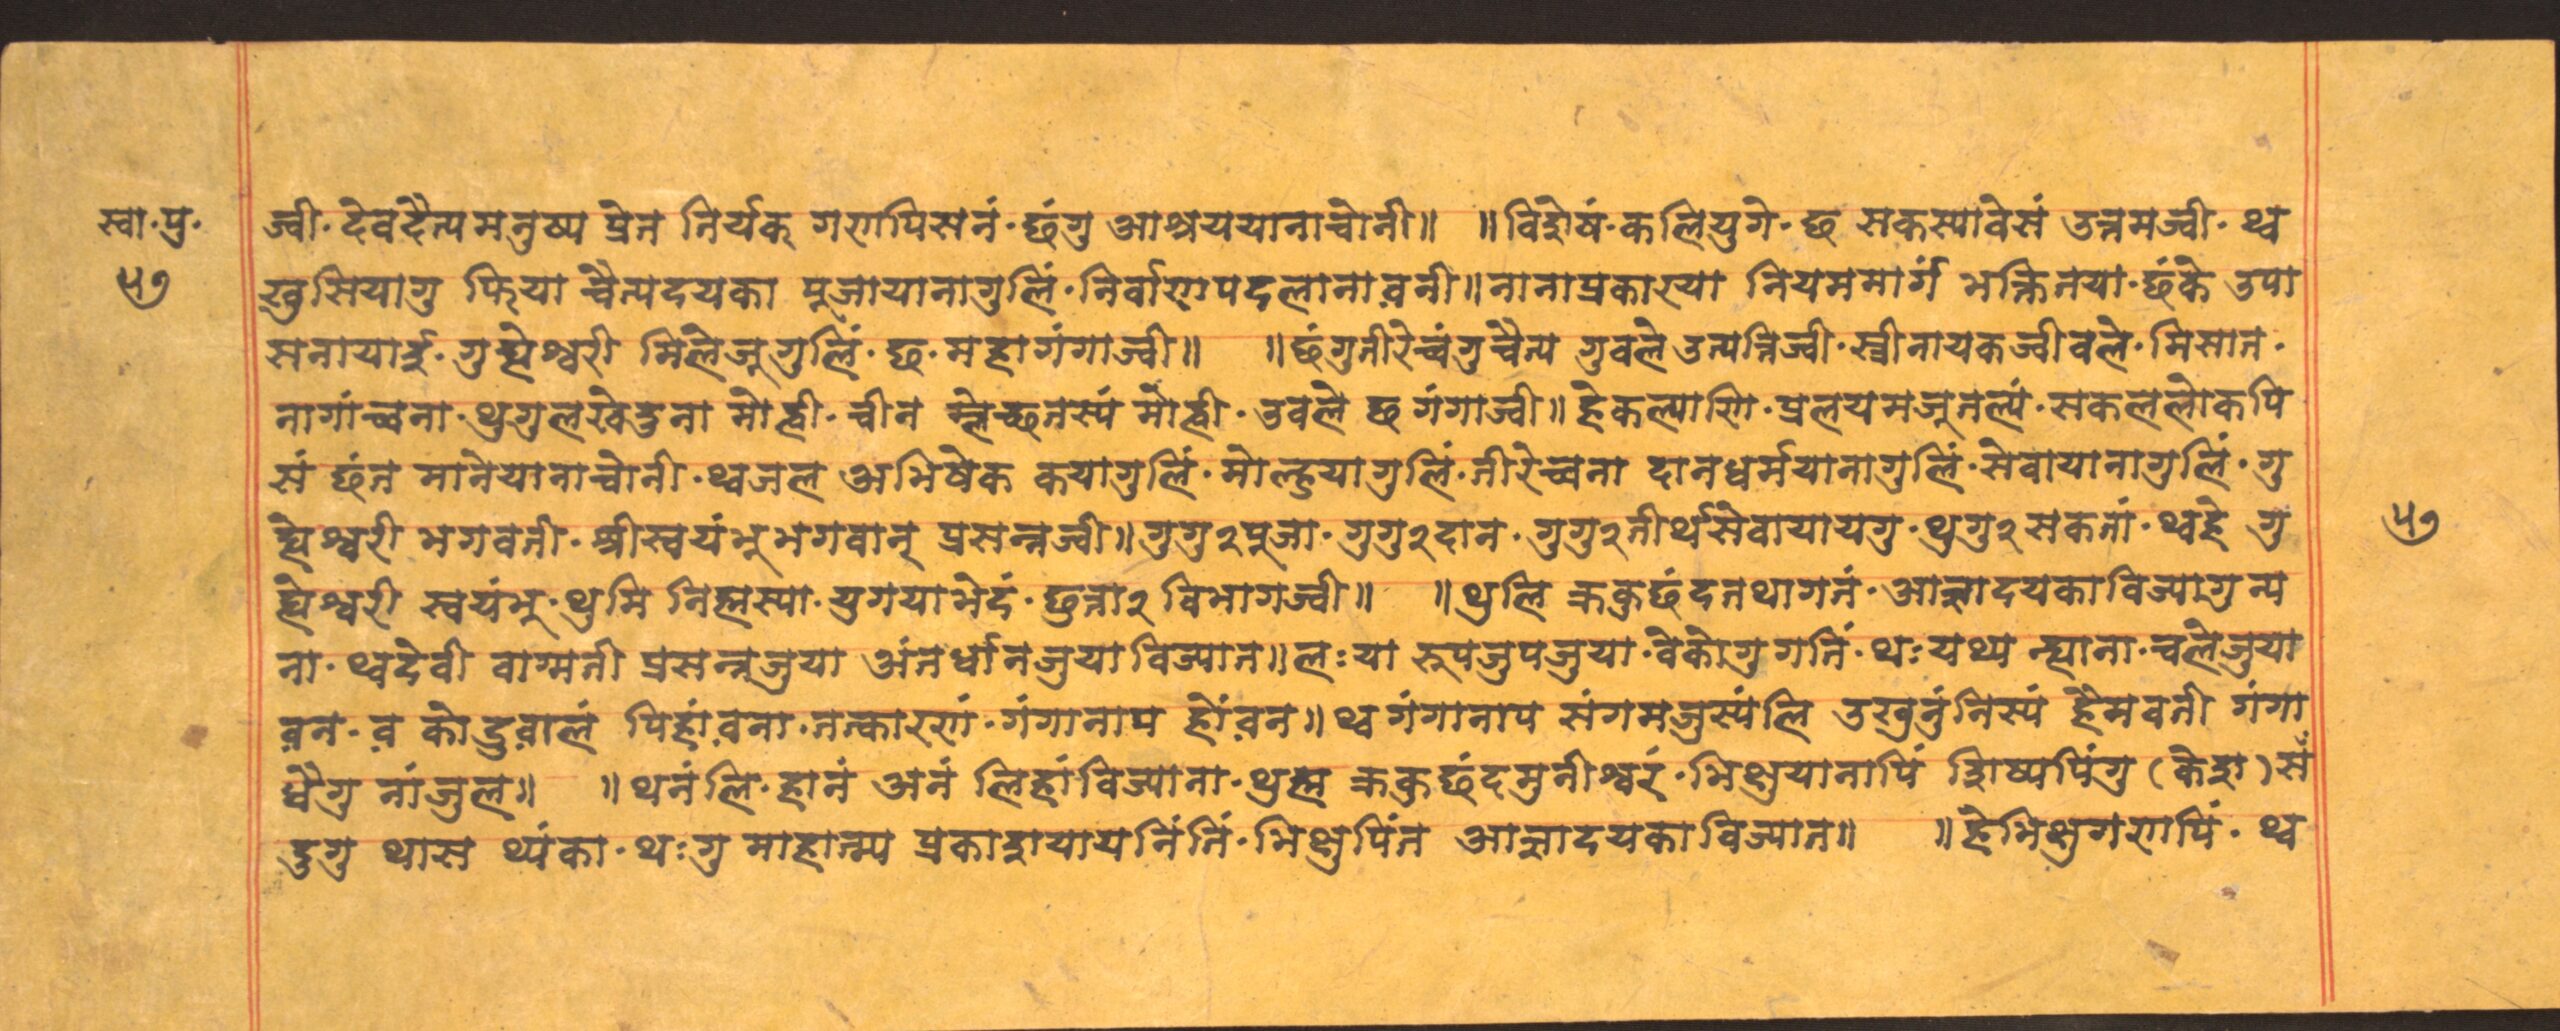 स्वा·पु·
५७
ज्वी·देवदैत्यमनुष्य प्रेत तिर्यक् गणपिसनं·छंगु आश्रययानाचोनी॥ ॥विशेषं·कलियुगे·छ सकस्यावेसं उत्तमज्वी·थ्व
खुसियागु फिया चैत्यदयका पूजायानागुलिं·निर्वाणपदलानाव़नी॥नानाप्रकारया नियममार्गं भक्तितया·छंके उपा
सनायाई·गुह्येश्वरी मिलेजूगुलिं·छ·महागंगाज्वी॥ ॥छंगुतीरेच्वंगुचैत्य गुवले उत्पन्निज्वी·स्त्रीनायकज्वीवले·मिसात·
नागांच्वना·थुगुलखेदुना मोल्ही·चीन म्लेच्छतस्यं मोल्ही·उवले छ गंगाज्वी॥हेकल्याणि·प्रलयमजूतल्यं·सकललोकपि
सं छंत मानेयानाचोनी·थ्वजल अभिषेक कयागुलिं·मोल्हुयागुलिं·तीरेच्वना दानधर्मयानागुलिं·सेवायानागुलिं·गु
ह्येश्वरी भगवती·श्रीस्वयंभूभगवान् प्रसन्नज्वी॥गुगु२पूजा·गुगु२दान·गुगु२तीर्थसेवायायगु·थुगु२सकतां·थ्वहे गु
ह्येश्वरी स्वयंभू·थुमि निह्मस्या·युगयाभेदं·छुत्ता२ विभागज्वी॥ ॥थुलि क्रकुछंदतथागतं·आज्ञादयकाविज्यागु न्य
ना·थ्वदेवी वाग्मती प्रसन्नजुया अंतर्धानजुयाविज्यात॥लःया रूपजुपजुया·वेकोगु गतिं·थःयथ्य न्ह्याना·चलेजुया
व़न·व़ कोदुव़ालं पिहांव़ना·तत्कारणं·गंगानाप होंव़न॥थ्वगंगानाप संगमजुस्यंलि उखुनुंनिस्यं हैमवती गंगा
धैगु नांजुल॥ ॥थनंलि·हानं अनं लिहांविज्याना·थुह्म क्रकुछंदमुनीश्वरं·भिक्षुयानापिं शिष्यपिंगु (केश) सं
दुगु थास थ्यंका·थःगु माहात्म्य प्रकाशयायनिंतिं·भिक्षुपिंत आज्ञादयकाविज्यात॥ ॥हेभिक्षुगणपिं·थ्व
५७